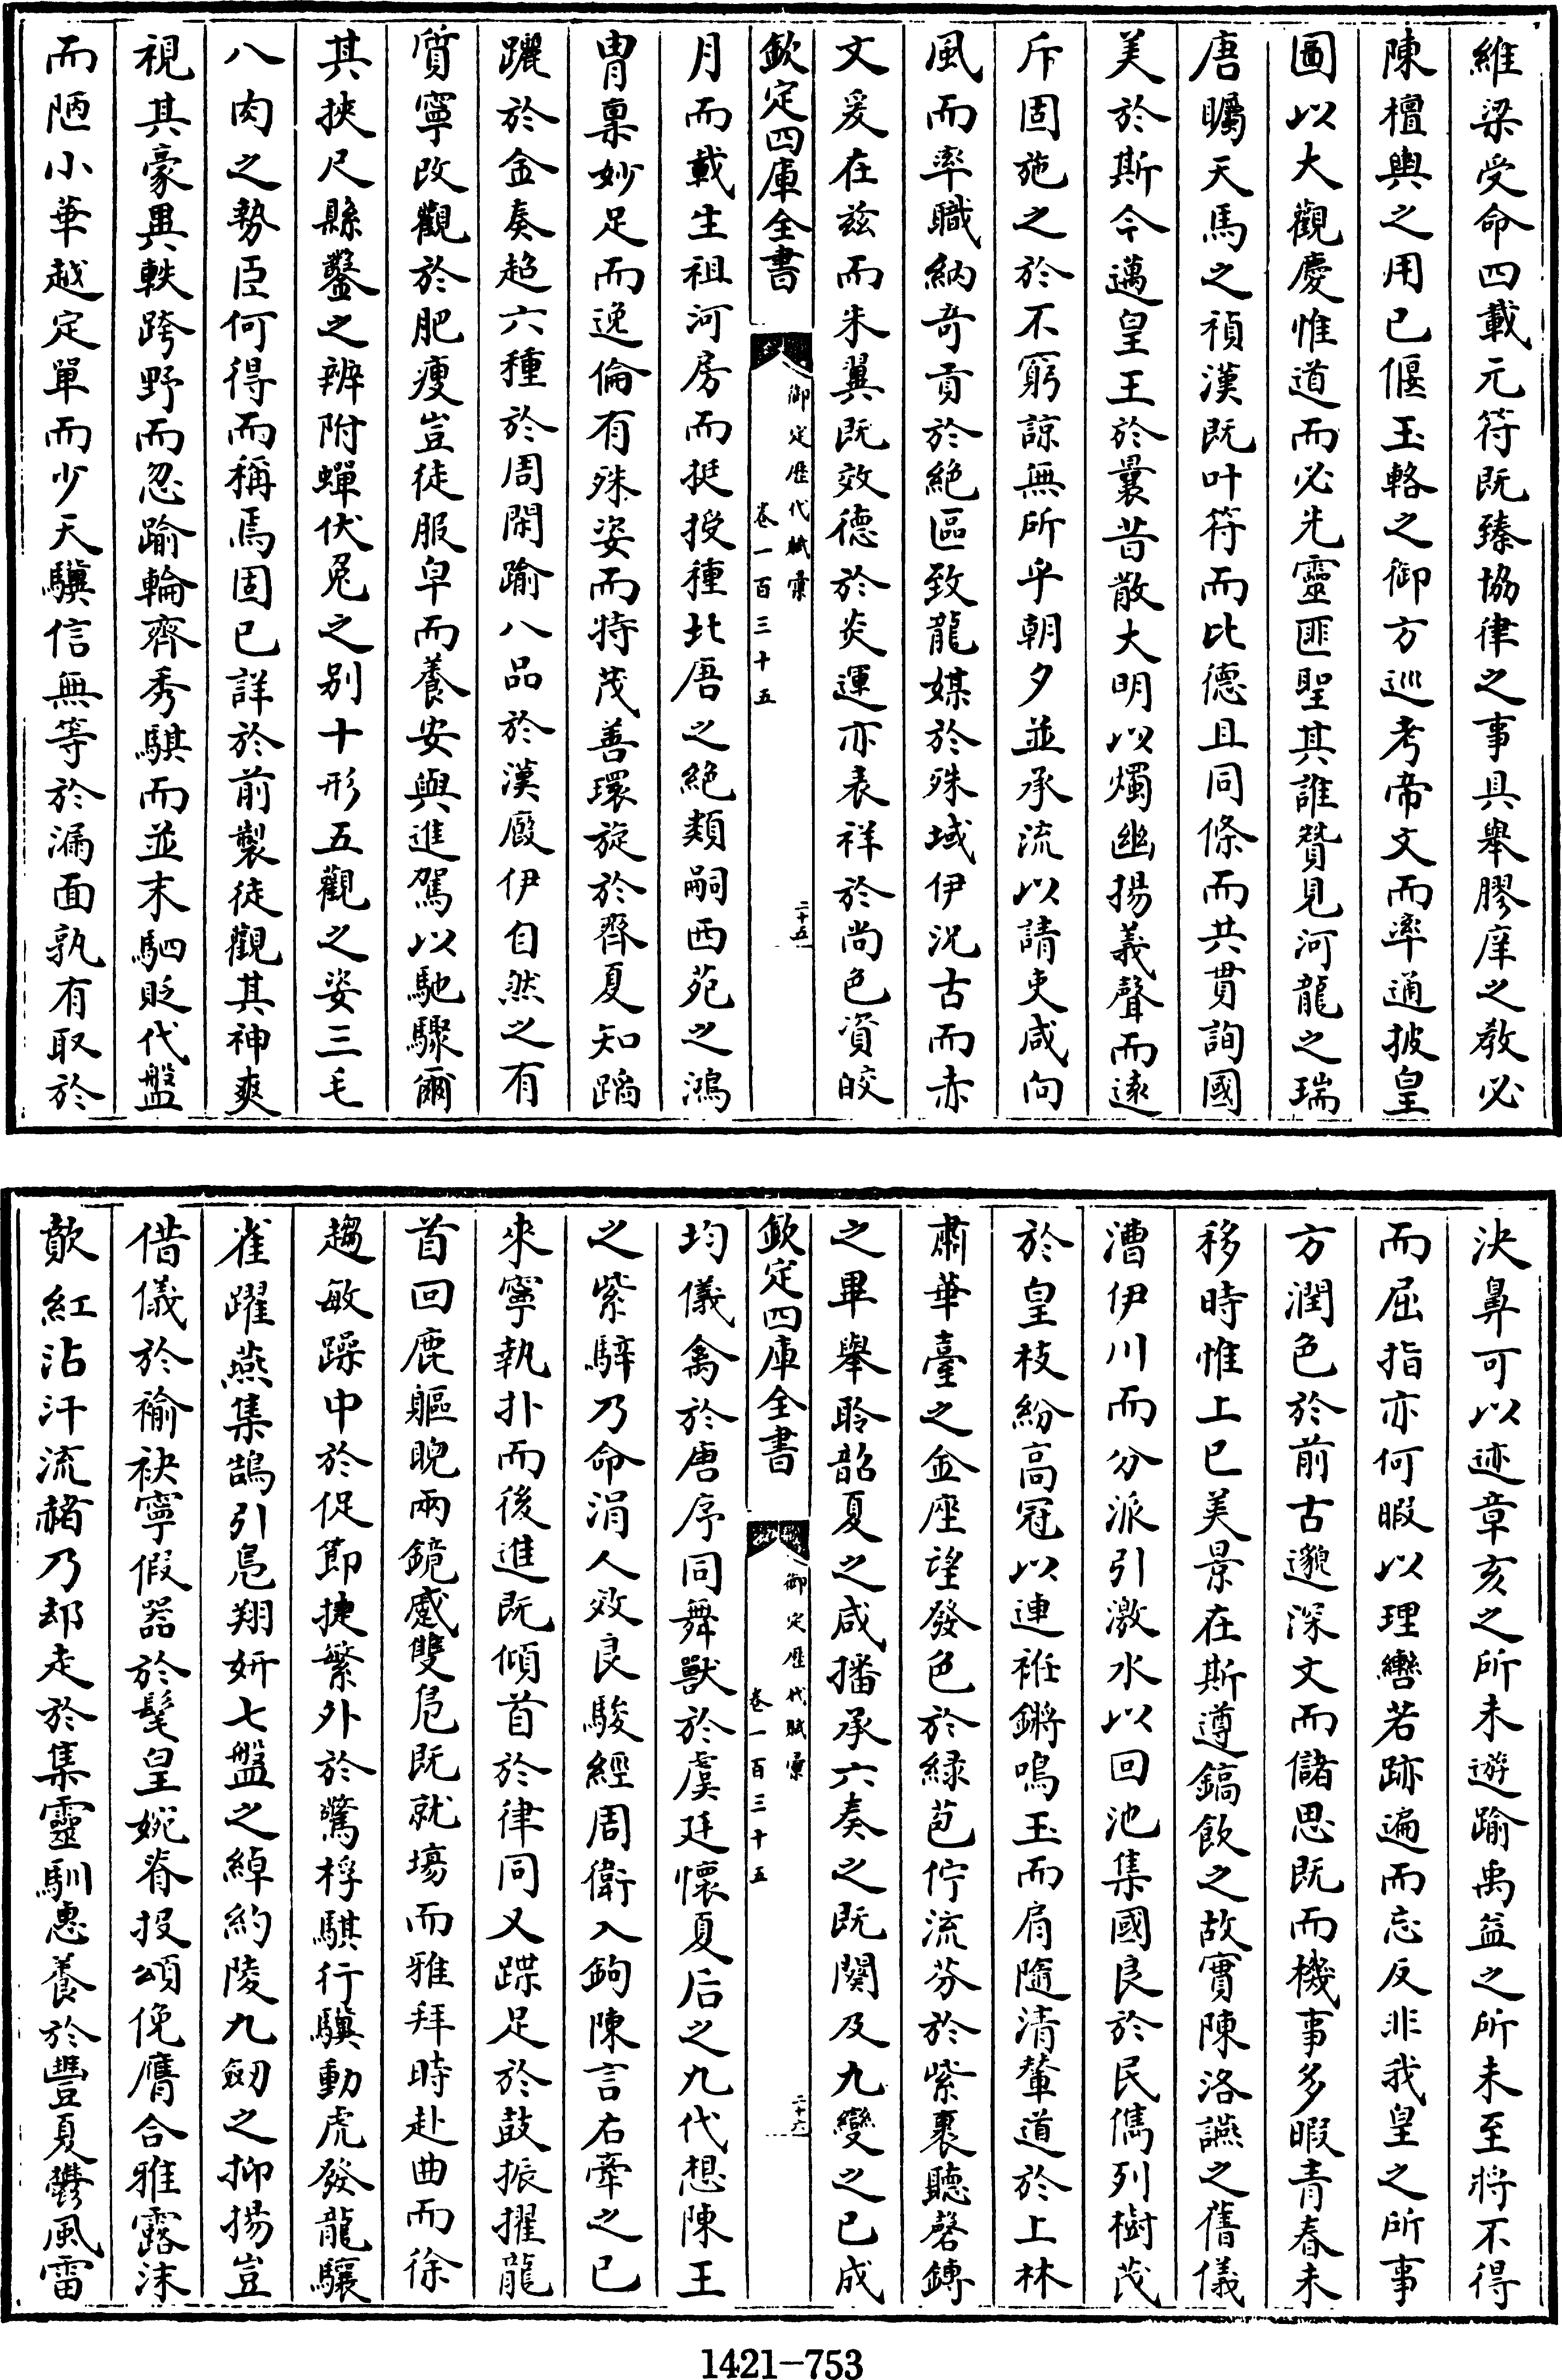 維梁受命四載元符既臻協律之事具舉膠庠之教必
陳檀輿之用已偃玉輅之御方巡考帝文而率通披皇
圖以大觀慶惟道而必先靈匪聖其誰贊見河龍之瑞
唐矚天馬之禎漢既叶符而比德且同條而共貫詢國
美於斯今邁皇王於曩昔散大明以燭幽揚義聲而遠
斥固施之於不窮諒無所乎朝夕並承流以請吏咸向
風而率職納奇貢於絕區致龍媒於殊域伊況古而赤
文爰在茲而朱翼既效德於炎運亦表祥於尚色資皎
欽定四庫全書
御定歷代賦彙
卷一百三十五
二十五
月而載生祖河房而挺授種北唐之絕類嗣西苑之鴻
冑稟妙足而逸倫有殊姿而特茂善環旋於齊夏知蹈
躍於金奏超六種於周閑踰八品於漢廄伊自然之有
質寧改觀於肥瘦豈徒服皁而養安與進駕以馳驟爾
其挾尺縣鑿之辨附蟬伏兔之別十形五觀之姿三毛
八肉之勢臣何得而稱焉固已詳於前製徒觀其神爽
視其豪異軼跨野而忽踰輪齊秀騏而並末駟貶代盤
而陋小華越定單而少天驥信無等於漏面孰有取於
決鼻可以迹章亥之所未遊踰禹益之所未至將不得
而屈指亦何暇以理轡若跡遍而忘反非我皇之所事
方潤色於前古邈深文而儲思既而機事多暇青春未
移時惟上巳美景在斯遵鎬飲之故實陳洛讌之舊儀
漕伊川而分派引激水以回池集國良於民儁列樹茂
於皇枝紛高冠以連袵鏘鳴玉而肩隨清輦道於上林
肅華臺之金座望發色於綠苞佇流芬於紫裏聽磬鎛
之畢舉聆韶夏之咸播承六奏之既闋及九變之已成
欽定四庫全書
御定歷代賦彙
卷一百三十五
二十六
均儀禽於唐序同舞獸於虞廷懷夏后之九代想陳王
之紫騂乃命涓人效良駿經周衛入鉤陳言右牽之已
來寧執扑而後進既傾首於律同又蹀足於鼓振擢龍
首回鹿軀睨兩鏡蹙雙鳧既就塲而雅拜時赴曲而徐
趨敏躁中於促節捷繁外於驚桴騏行驥動虎發龍驤
雀躍燕集鵠引鳧翔妍七盤之綽約陵九劒之抑揚豈
借儀於褕袂寧假器於髦皇婉脊投頌俛膺合雅露沫
歕紅沾汗流赭乃却走於集靈馴惠養於豐夏鬱風雷
1421—753